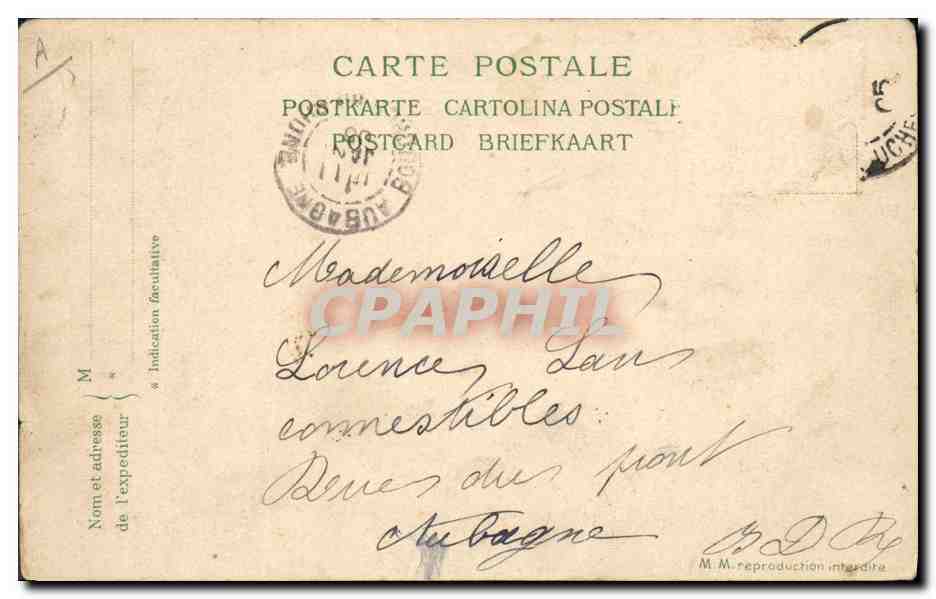 A
CARTE POSTALE
POSTKARTE CARTOLINA POSTALE
POSTCARD BRIEFKAART
AUBAGNE
11
05
UCHE
Mademoiselle
CPAPHIL
Lorences Laus
commestibles
Rues du pont
Aubagne
B D R
M. M. reproduction interdite
Nom et adresse
de l'expediteur
M
*
* Indication facultative